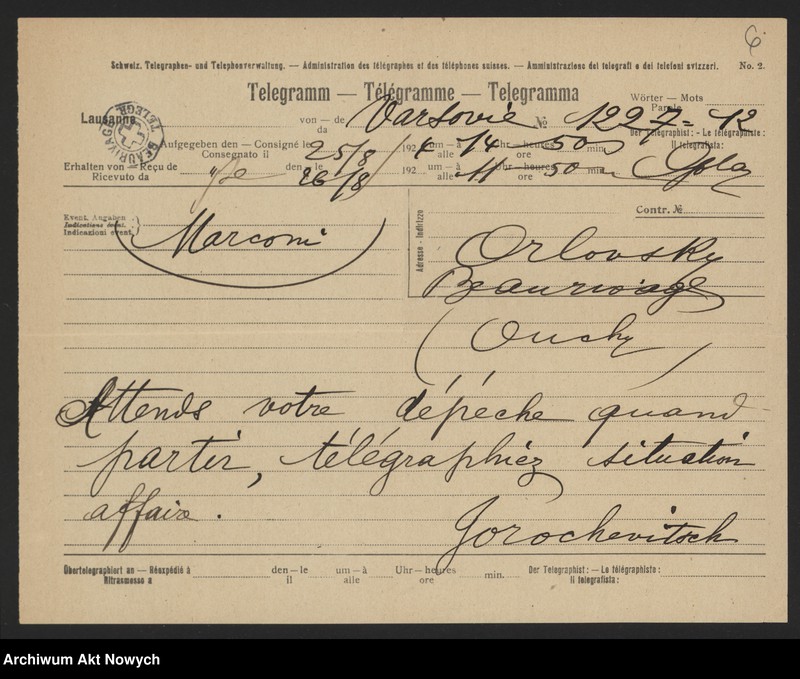 6
Schweiz. Telegraphen- und Telephonverwaltung. — Administration des télégraphes et des téléphones suisses. — Amministrazione dei telegrafi e dei telefoni svizzeri. No. 2.
Telegramm — Télégramme — Telegramma
Wörter — Mots
Parole
Lausanne von — de Varsovie № 1227 = 12
da
BEAURIVAGE TELEGR.
Der Telegraphist: - Le télégraphiste:
Il telegrafista:
Aufgegeben den — Consigné le 25/8 192 4 um — à 14 Uhr — heures 50 min.
Consegnato il alle ore
Erhalten von — Reçu de den — le 26/8 192 um — à 11 Uhr — heures 50 min.
Ricevuto da il alle ore
Contr. №
Event. Angaben
Indications évent.
Indicazioni event.
Marconi
Adresse - Indirizzo
Orlovsky
Beaurivage
(Ouchy)
Attends votre dépéche quand
partir, télégraphiez situation
affaire.
Jorochevitsch
Übertelegraphiert an — Réexpédié à den — le um — à Uhr — heures min. Der Telegraphist: — Le télégraphiste:
Ritrasmesso a il alle ore Il telegrafista:
Archiwum Akt Nowych